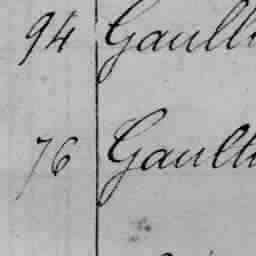 94 Gault
76 Gault